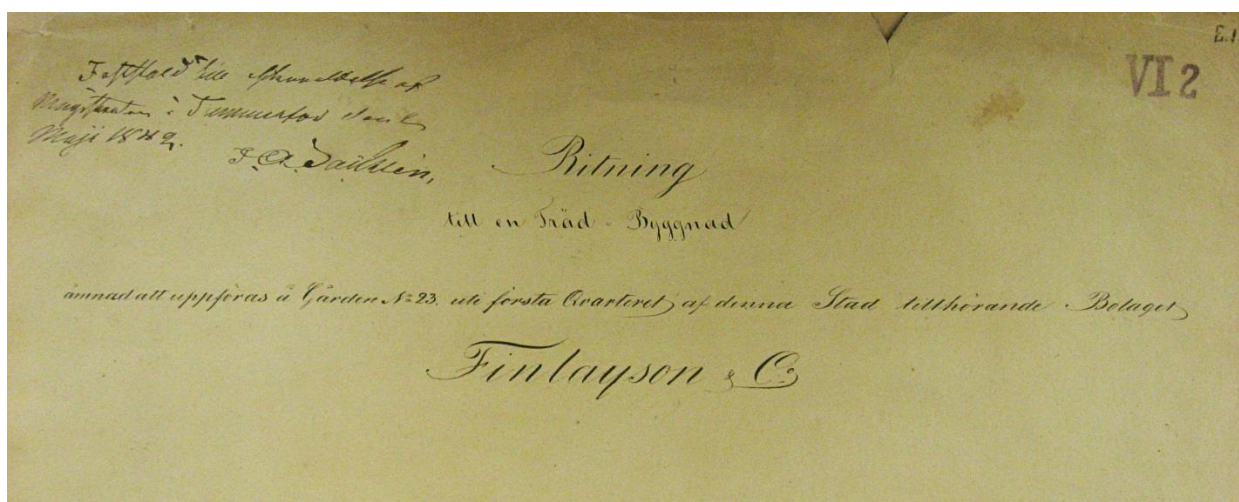 E.1.
VI 2
Fastställd till efterrättelse af
Magistraten i Tammerfors den
Maji 1842.
Ritning
till en Träd-Byggnad
ämnad att uppföras å Gården No 23. uti första Qvarteret af denna Stad tillhörande Bolaget
Finlayson & Co